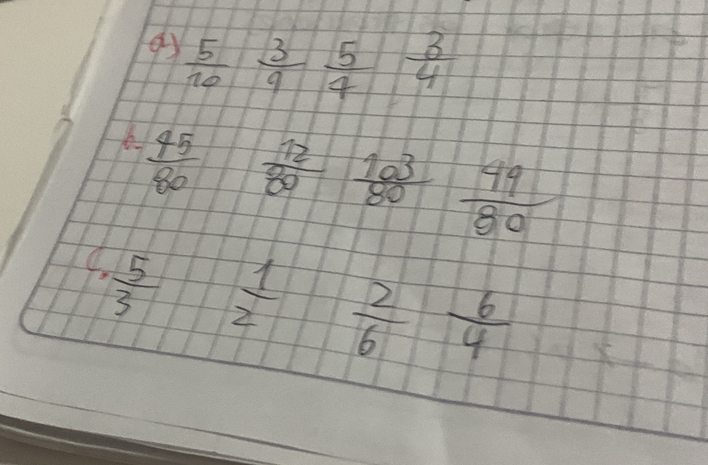 a) 5/10 3/9 5/4 3/4
b. 45/80 12/80 103/80 49/80
c. 5/3 1/2 2/6 6/4